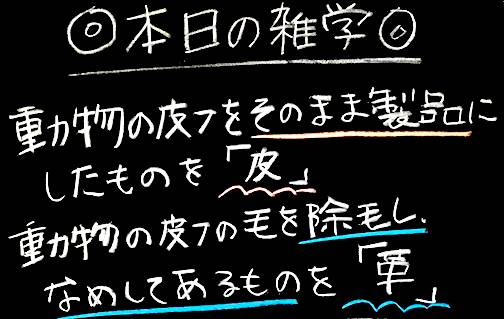 ◎本日の雑学◎
動物の皮フをそのまま製品に
したものを「皮」
動物の皮フの毛を除毛し、
なめしてあるものを「革」